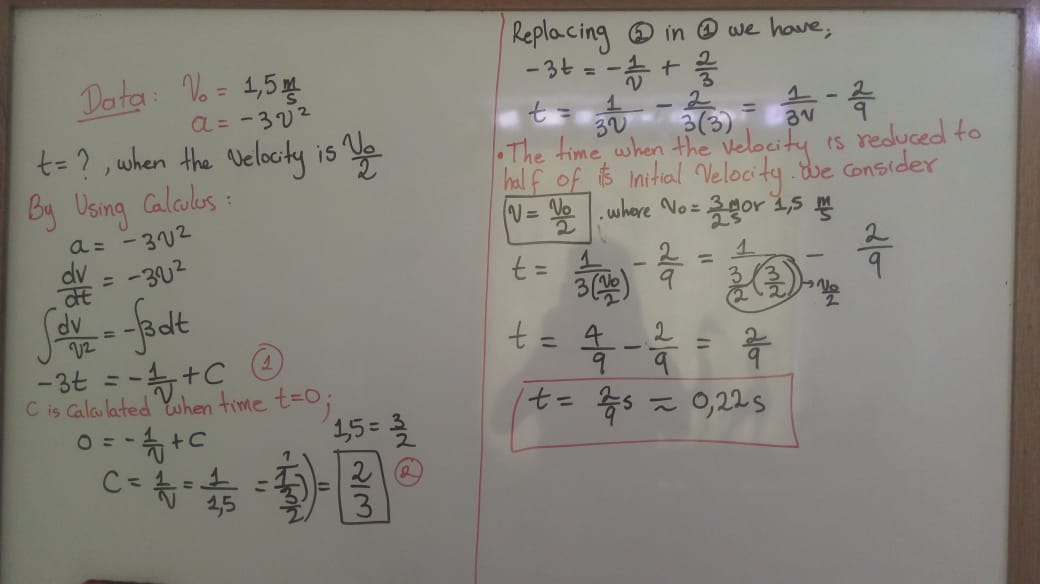 Data: V₀ = 1,5 m/s
a = -3v²
t = ?, when the velocity is V₀/2
By Using Calculus:
a = -3v²
dv/dt = -3v²
∫dv/v² = -∫3dt
-3t = -1/v + C ①
C is calculated when time t=0;
0 = -1/v + C
1,5 = 3/2
C = 1/v = 1/1,5 = 1/(3/2) = 2/3 ②
Replacing ② in ① we have;
-3t = -1/v + 2/3
t = 1/3v - 2/3(3) = 1/3v - 2/9
• The time when the velocity is reduced to
half of its Initial Velocity. We consider
v = v₀/2 . where v₀ = 3/2 m/s or 1,5 m/s
t = 1/3(v₀/2) - 2/9 = 1/(3/2(3/2)) - 2/9
→ v₀/2
t = 4/9 - 2/9 = 2/9
t = 2/9 s ≈ 0,22s